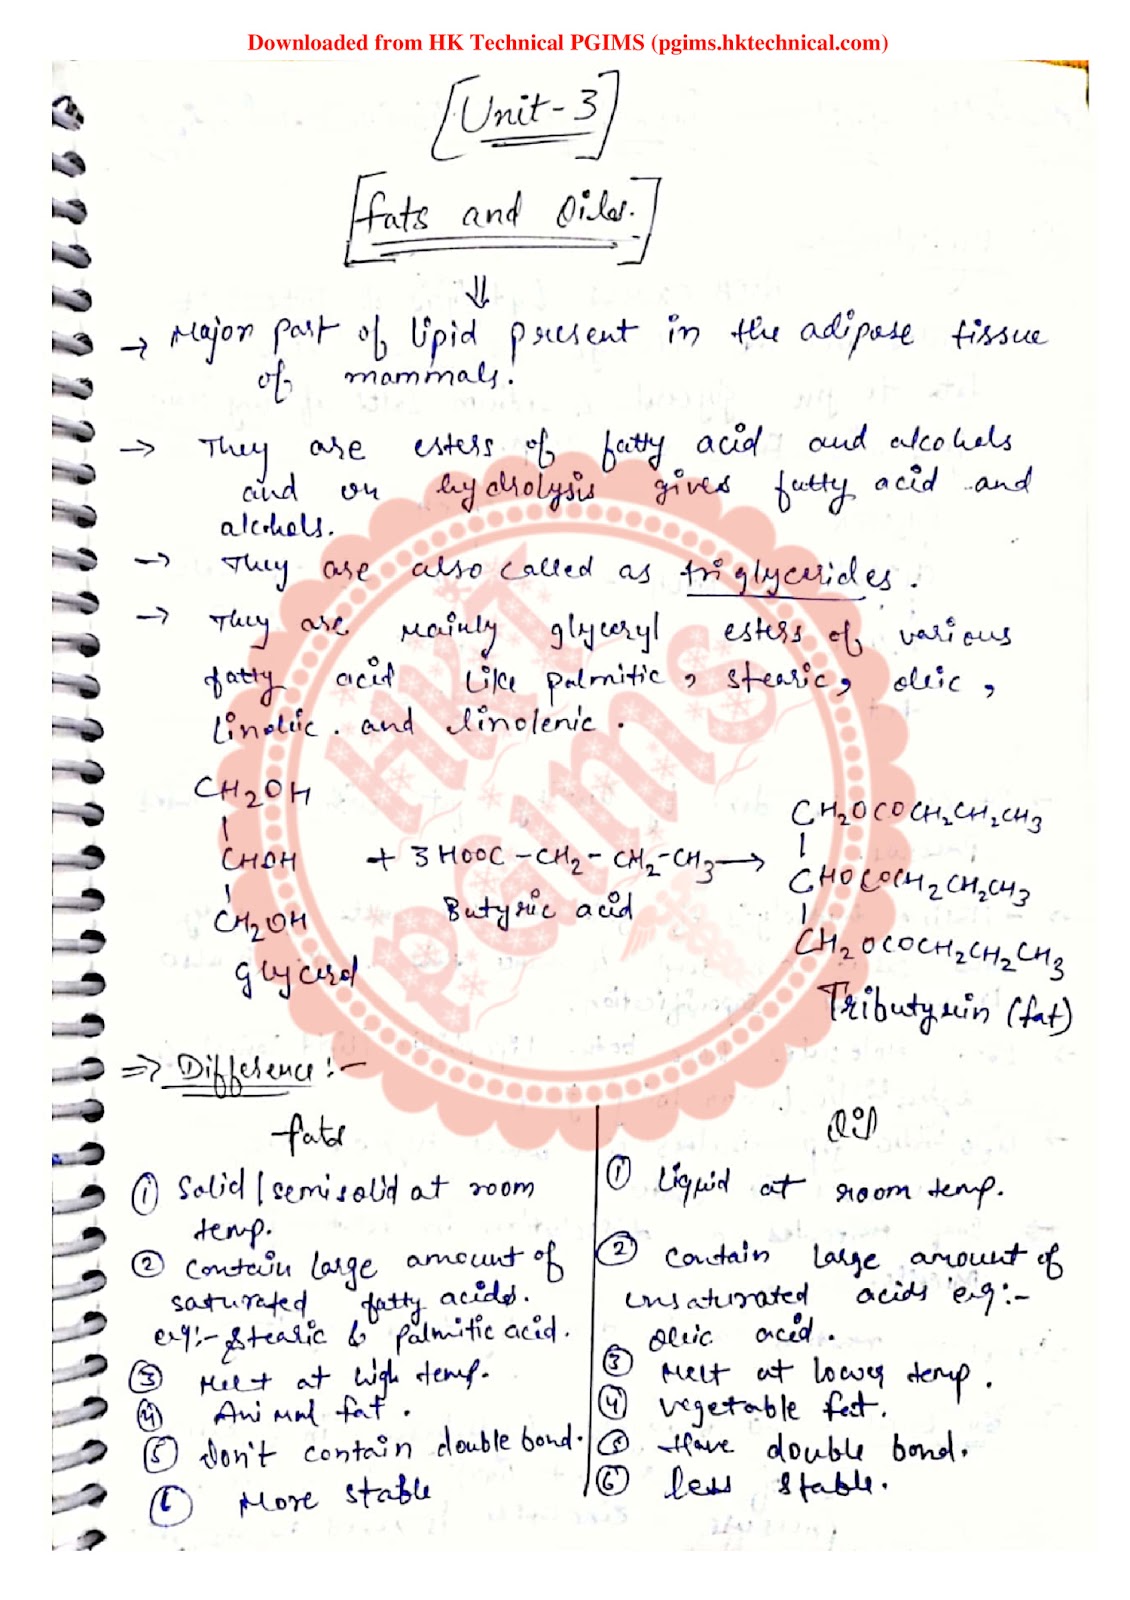 Downloaded from HK Technical PGIMS (pgims.hktechnical.com)
[Unit-3]
[fats and Oils.]
⇓
→ Major part of lipid present in the adipose tissue
of mammals.
→ They are esters of fatty acid and alcohols
and on hydrolysis gives fatty acid and
alcohols.
→ They are also called as triglycerides.
→ They are mainly glyceryl esters of various
fatty acid like palmitic, stearic, oleic,
linoleic. and linolenic.
CH₂OH
|
CHOH
|
CH₂OH
glycerol
+ 3HOOC-CH₂-CH₂-CH₃ →
Butyric acid
CH₂OCOCH₂CH₂CH₃
|
CHOCOCH₂CH₂CH₃
|
CH₂OCOCH₂CH₂CH₃
Tributyrin (fat)
⇒ Difference:-
fats
① Solid/semisolid at room
temp.
② contain large amount of
saturated fatty acids.
eg:- stearic & palmitic acid.
③ Melt at high temp.
④ Animal fat.
⑤ don't contain double bond.
⑥ More stable
Oil
① Liquid at room temp.
② contain large amount of
unsaturated acids eg:-
oleic acid.
③ Melt at lower temp.
④ vegetable fat.
⑤ Have double bond.
⑥ less stable.
HKT
PGIMS